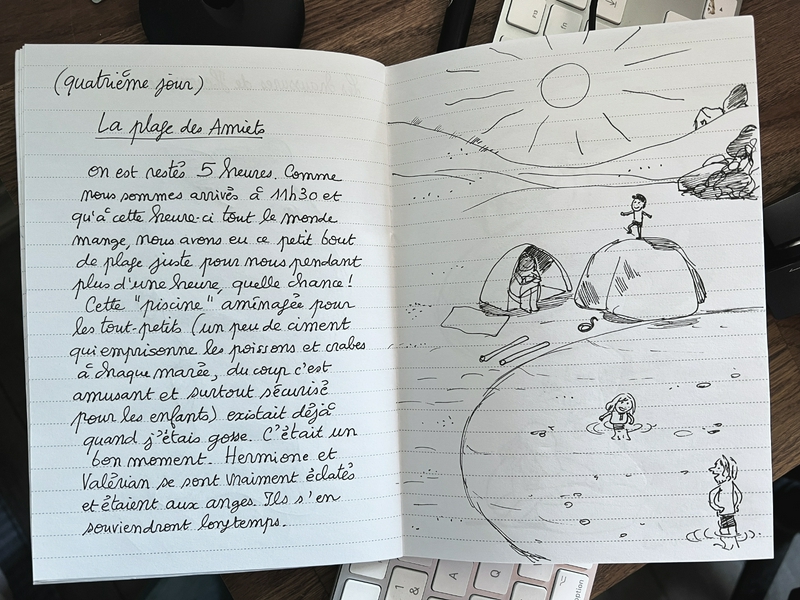 (quatrième jour)
La plage des Amiets
on est restés 5 heures. Comme
nous sommes arrivés à 11h30 et
qu'à cette heure-ci tout le monde
mange, nous avons eu ce petit bout
de plage juste pour nous pendant
plus d'une heure, quelle chance!
Cette "piscine" aménagée pour
les tout-petits (un peu de ciment
qui emprisonne les poissons et crabes
à chaque marée, du coup c'est
amusant et surtout sécurisé
pour les enfants) existait déjà
quand j'étais gosse. C'était un
bon moment. Hermione et
Valérian se sont vraiment éclatés
et étaient aux anges. Ils s'en
souviendront longtemps.
1
&
A
Q
option